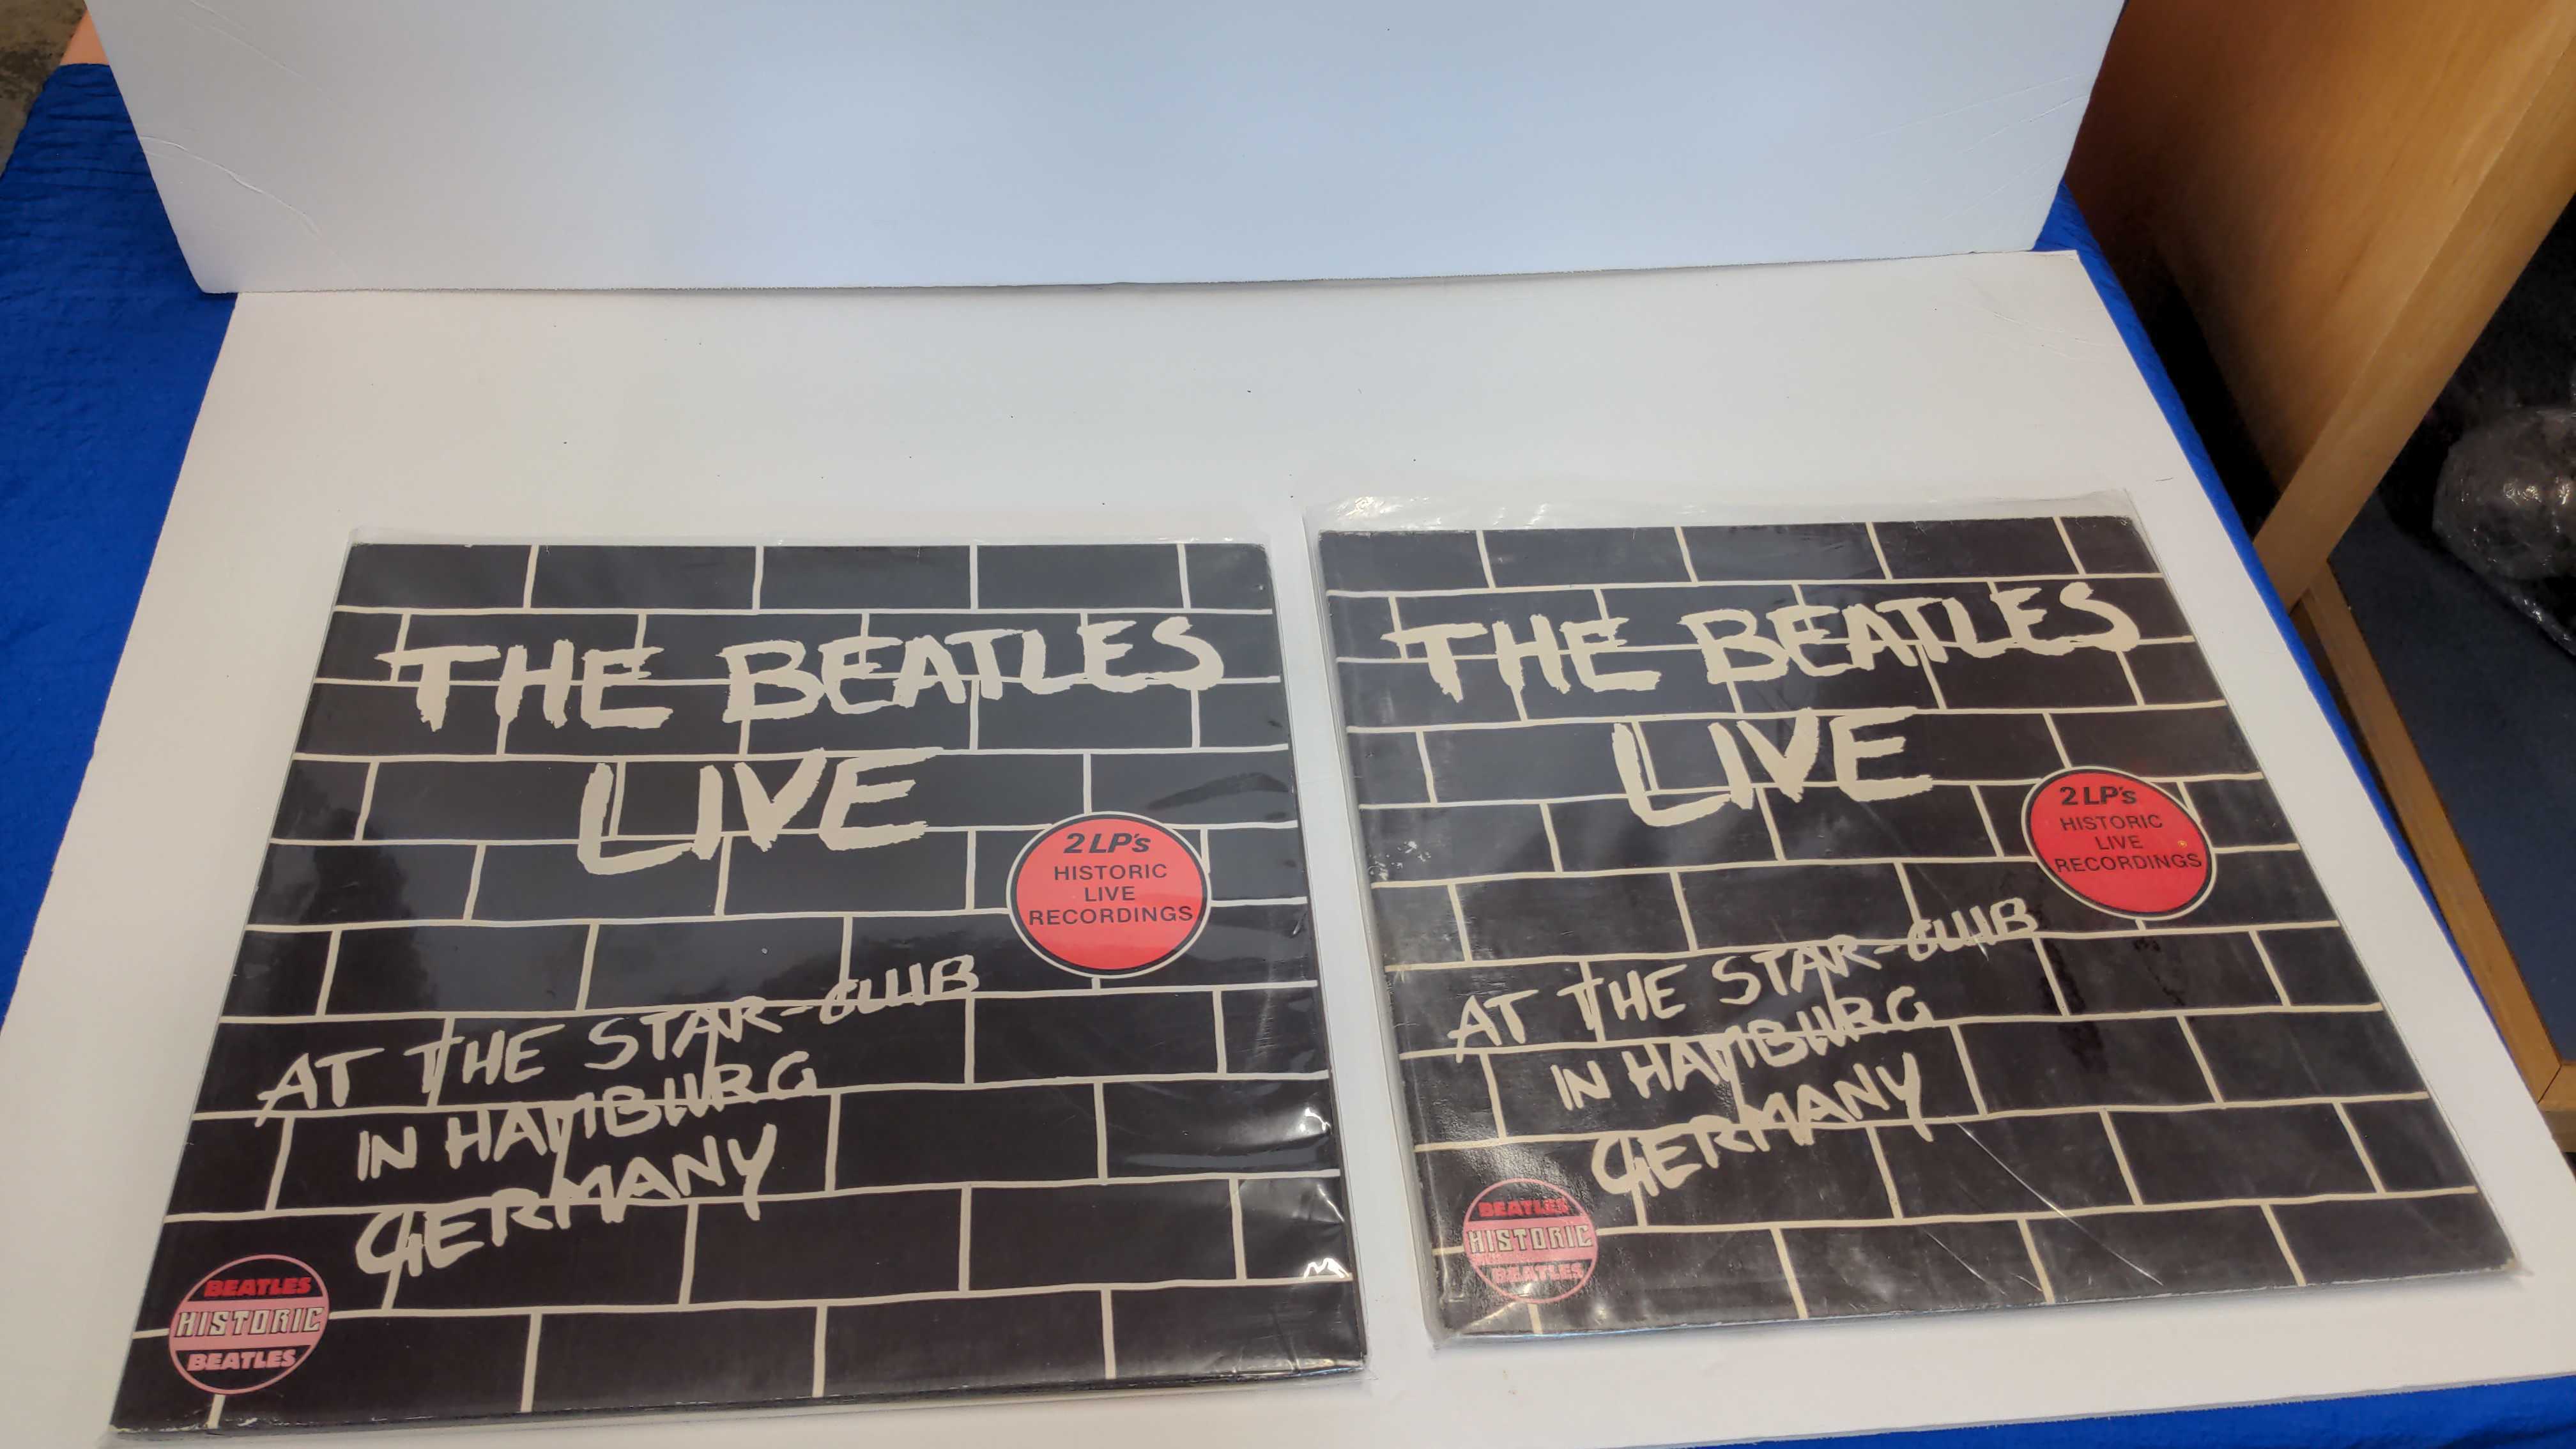 THE BEATLES
LIVE
2 LP's
HISTORIC
LIVE
RECORDINGS
AT THE STAR-CLUB
IN HAMBURG
GERMANY
BEATLES
HISTORIC
BEATLES
THE BEATLES
LIVE
2 LP's
HISTORIC
LIVE
RECORDINGS
AT THE STAR-CLUB
IN HAMBURG
GERMANY
BEATLES
HISTORIC
BEATLES